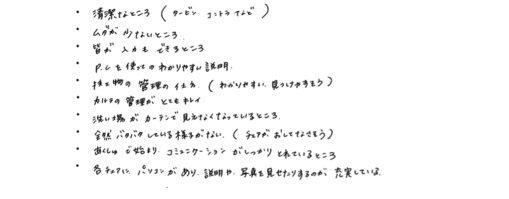 ・ 清潔なところ （ タービン、コントラ など ）
・ ムダが 少ないところ.
・ 皆が 入力も できるところ
・ P.C を 使っての わかりやすい 説明.
・ 技工物の 管理の 仕方. （ わかりやすい. 見つけやすそう ）
・ カルテの 管理が とても キレイ.
・ 洗い場が カーテンで 見えなくなっているところ.
・ 全然 バタバタしている様子がない. （ チェアが おしてなさそう ）
・ あくしゅで 始まり. コミュニケーション がしっかり とれているところ
・ 各チェアに. パソコンが あり. 説明や. 写真を 見せたりするのが. 充実している.